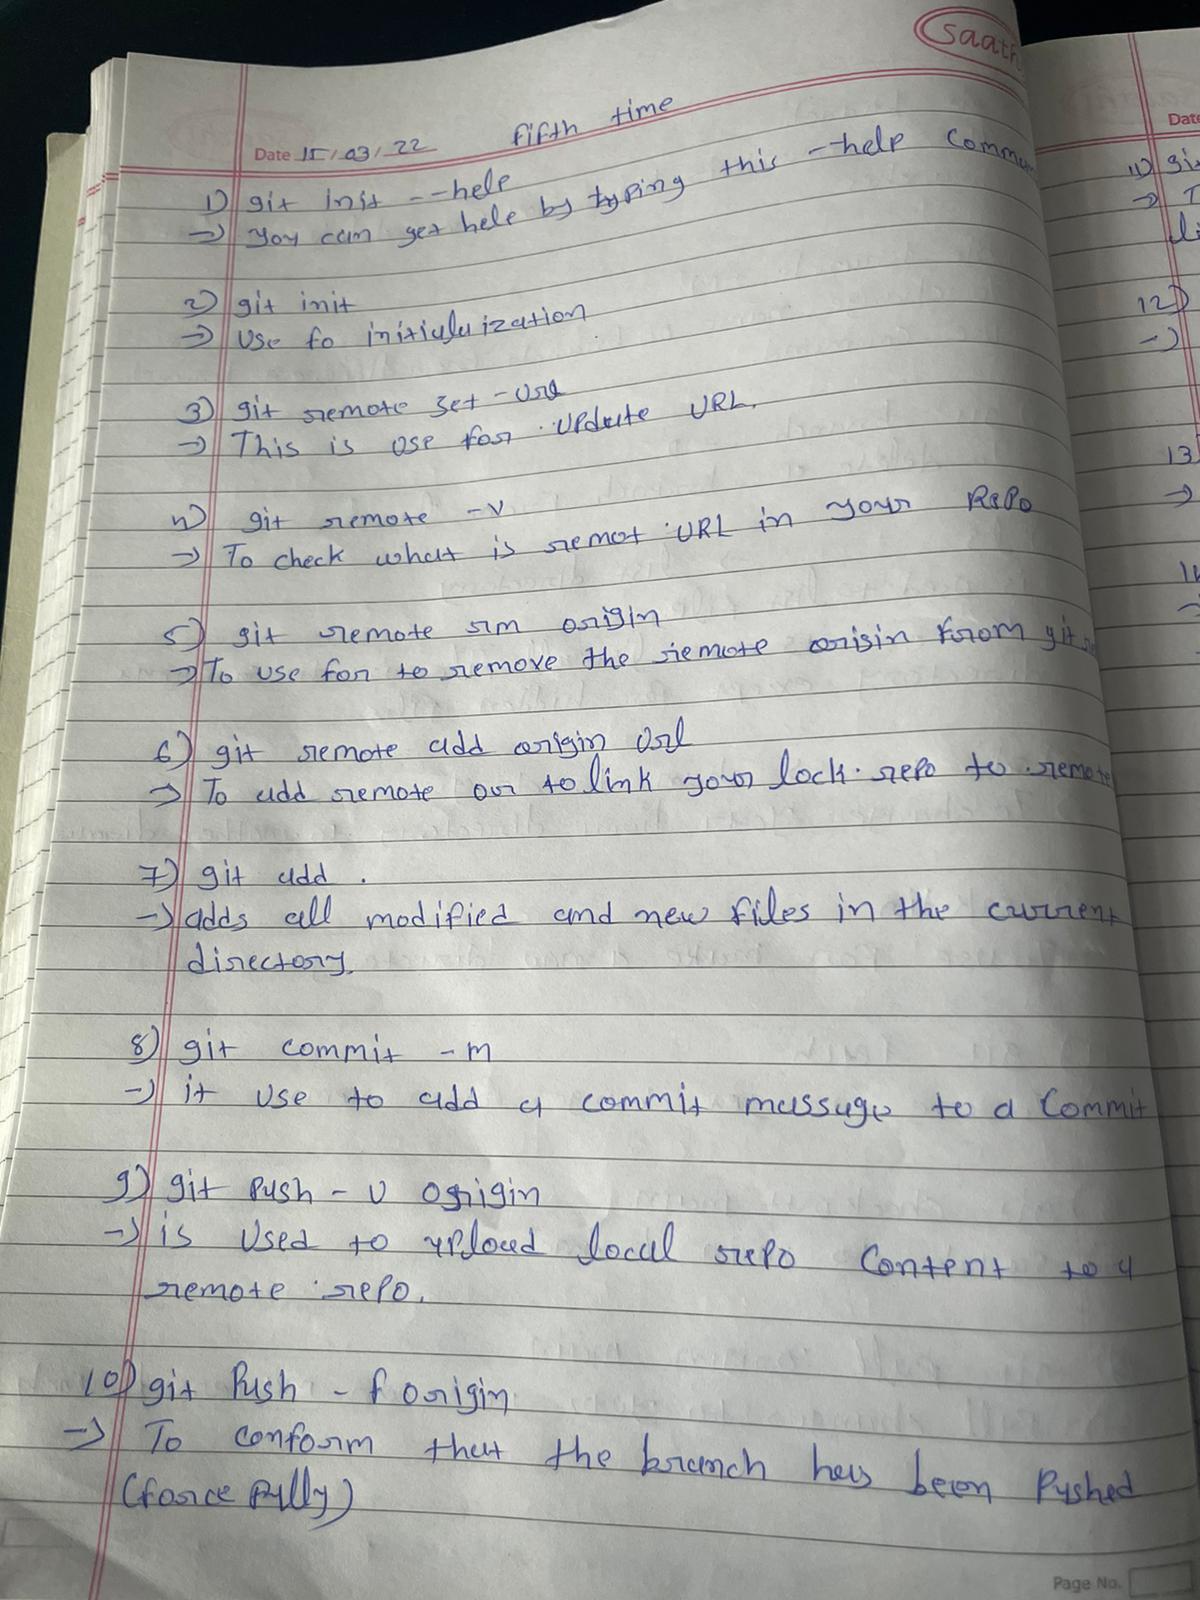 saath
fifth time
Date 15/03/22
1) git init --help
=> you can get hele by typing this -help Comm
2) git init
=> Use fo initialuization
3) git remote set-Url
=> This is use for update URL.
4) git remote -v
=> To check what is remot URL in your Repo
5) git remote rm origin
=> To use for to remove the remote orisin from git
6) git remote add origin Url
=> To add remote our to link your lock repo to remote
7) git add .
-> adds all modified and new files in the current
directory.
8) git commit -m
-> it use to add a commit massage to a Commit
9) git Push -u origin
-> is Used to upload local repo Content to a
remote repo.
10) git Push -f origin
-> To conform that the branch has been Pushed
(force fully)
Page No.
Date
11) gi
=>
12)
->
13
=>